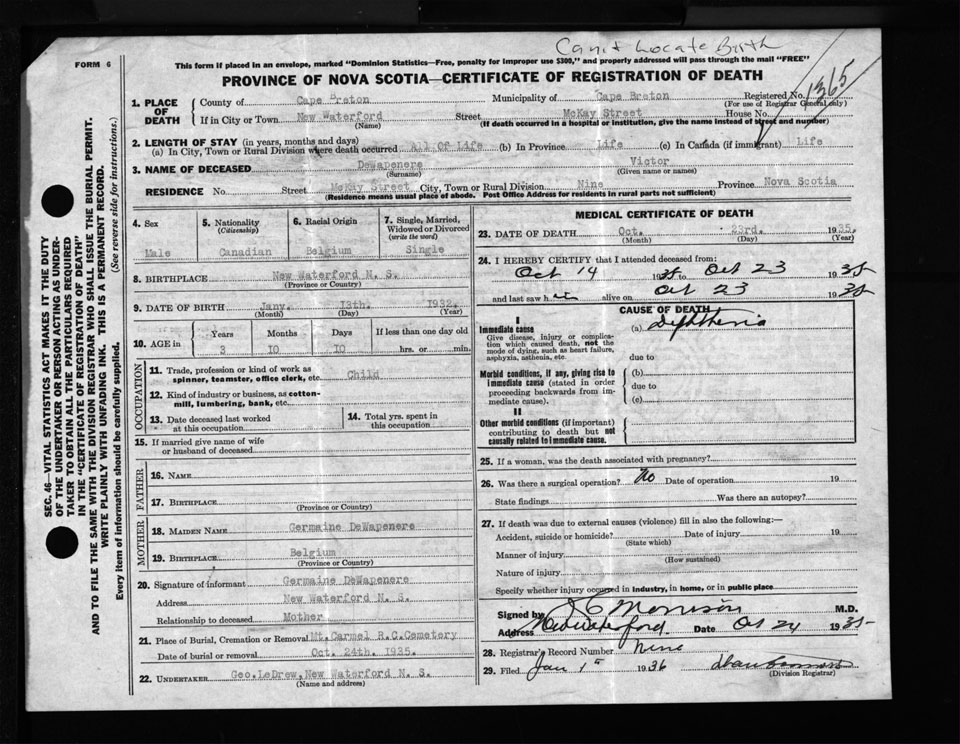 Can't Locate Birth
FORM 6
This form if placed in an envelope, marked "Dominion Statistics—Free, penalty for improper use $300," and properly addressed will pass through the mail "FREE"
PROVINCE OF NOVA SCOTIA—CERTIFICATE OF REGISTRATION OF DEATH
1365
1. PLACE OF DEATH
County of Cape Breton Municipality of Cape Breton Registered No.
(For use of Registrar General only)
If in City or Town New Waterford Street McKay Street House No.
(Name) (If death occurred in a hospital or institution, give the name instead of street and number)
2. LENGTH OF STAY (in years, months and days)
(a) In City, Town or Rural Division where death occurred All Of Life (b) In Province Life (c) In Canada (if immigrant) Life
3. NAME OF DECEASED DeWapenere Victor
(Surname) (Given name or names)
RESIDENCE No. Street McKay Street City, Town or Rural Division Nine Province Nova Scotia
(Residence means usual place of abode. Post Office Address for residents in rural parts not sufficient)
4. Sex
Male
5. Nationality
(Citizenship)
Canadian
6. Racial Origin
Belgium
7. Single, Married, Widowed or Divorced
(write the word)
Single
8. BIRTHPLACE New Waterford N. S.
(Province or Country)
9. DATE OF BIRTH Jany. 13th. 1932.
(Month) (Day) (Year)
10. AGE in
Years Months Days If less than one day old
3 10 10 hrs. or min.
OCCUPATION
11. Trade, profession or kind of work as
spinner, teamster, office clerk, etc. Child
12. Kind of industry or business, as cotton-
mill, lumbering, bank, etc.
13. Date deceased last worked
at this occupation
14. Total yrs. spent in
this occupation
15. If married give name of wife
or husband of deceased
FATHER
16. NAME
17. BIRTHPLACE
(Province or Country)
MOTHER
18. MAIDEN NAME Germaine DeWapenere
19. BIRTHPLACE Belgium
(Province or Country)
20. Signature of informant Germaine DeWapenere
Address New Waterford N. S.
Relationship to deceased Mother
21. Place of Burial, Cremation or Removal Mt. Carmel R.C. Cemetery
Date of burial or removal Oct. 24th. 1935.
22. UNDERTAKER Geo. LeDrew, New Waterford N. S.
(Name and address)
MEDICAL CERTIFICATE OF DEATH
23. DATE OF DEATH Oct. 23rd. 1935.
(Month) (Day) (Year)
24. I HEREBY CERTIFY that I attended deceased from:
Oct 14 1935 to Oct 23 1935
and last saw him alive on Oct 23 1935
CAUSE OF DEATH
I
Immediate cause
Give disease, injury or complication which caused death, not the mode of dying, such as heart failure, asphyxia, asthenia, etc.
(a) Diphtheria
due to
Morbid conditions, if any, giving rise to immediate cause (stated in order proceeding backwards from immediate cause).
(b)
due to
(c)
II
Other morbid conditions (if important) contributing to death but not causally related to immediate cause.
25. If a woman, was the death associated with pregnancy?
26. Was there a surgical operation? No Date of operation 19
State findings Was there an autopsy?
27. If death was due to external causes (violence) fill in also the following:—
Accident, suicide or homicide? Date of injury 19
(State which)
Manner of injury
(How sustained)
Nature of injury
Specify whether injury occurred in industry, in home, or in public place
Signed by J C Morrison M.D.
Address New Waterford. Date Oct 24 1935
28. Registrar's Record Number Nine
29. Filed Jan 15 1936
(Division Registrar)
SEC. 46—VITAL STATISTICS ACT MAKES IT THE DUTY
OF THE UNDERTAKER OR PERSON ACTING AS UNDER-
TAKER TO OBTAIN ALL THE PARTICULARS REQUIRED
IN THE "CERTIFICATE OF REGISTRATION OF DEATH"
AND TO FILE THE SAME WITH THE DIVISION REGISTRAR WHO SHALL ISSUE THE BURIAL PERMIT.
WRITE PLAINLY WITH UNFADING INK. THIS IS A PERMANENT RECORD.
Every item of information should be carefully supplied. (See reverse side for instructions.)